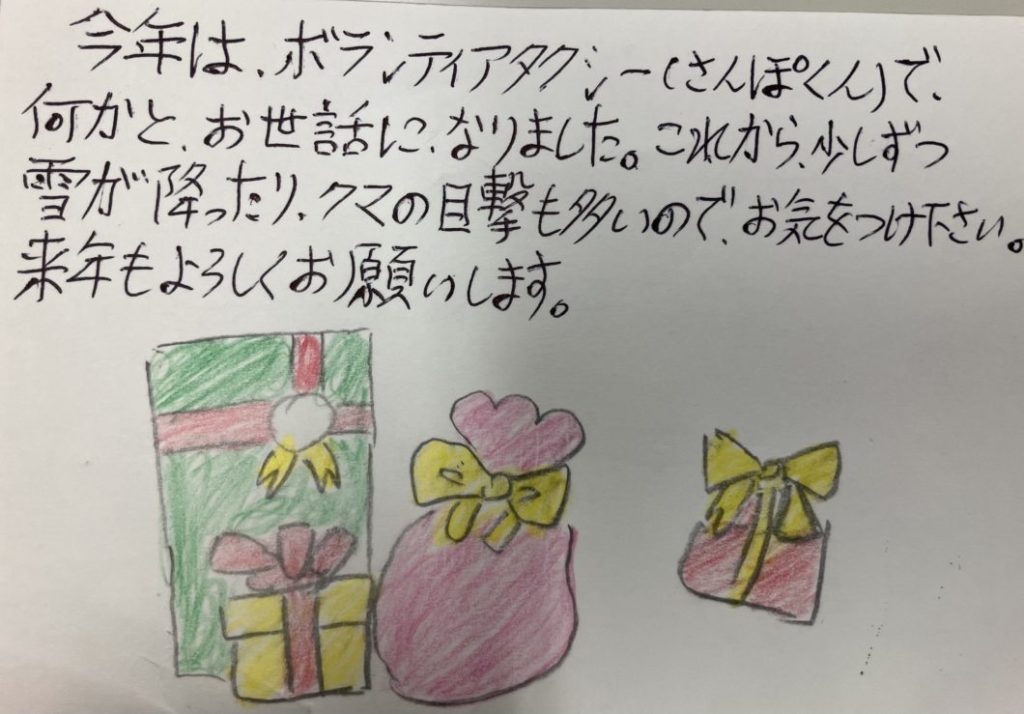 今年は、ボランティアタクシー(さんぽくん)で、
何かと、お世話に、なりました。これから、少しずつ
雪が降ったり、クマの目撃も多いので、お気をつけ下さい。
来年もよろしくお願いします。